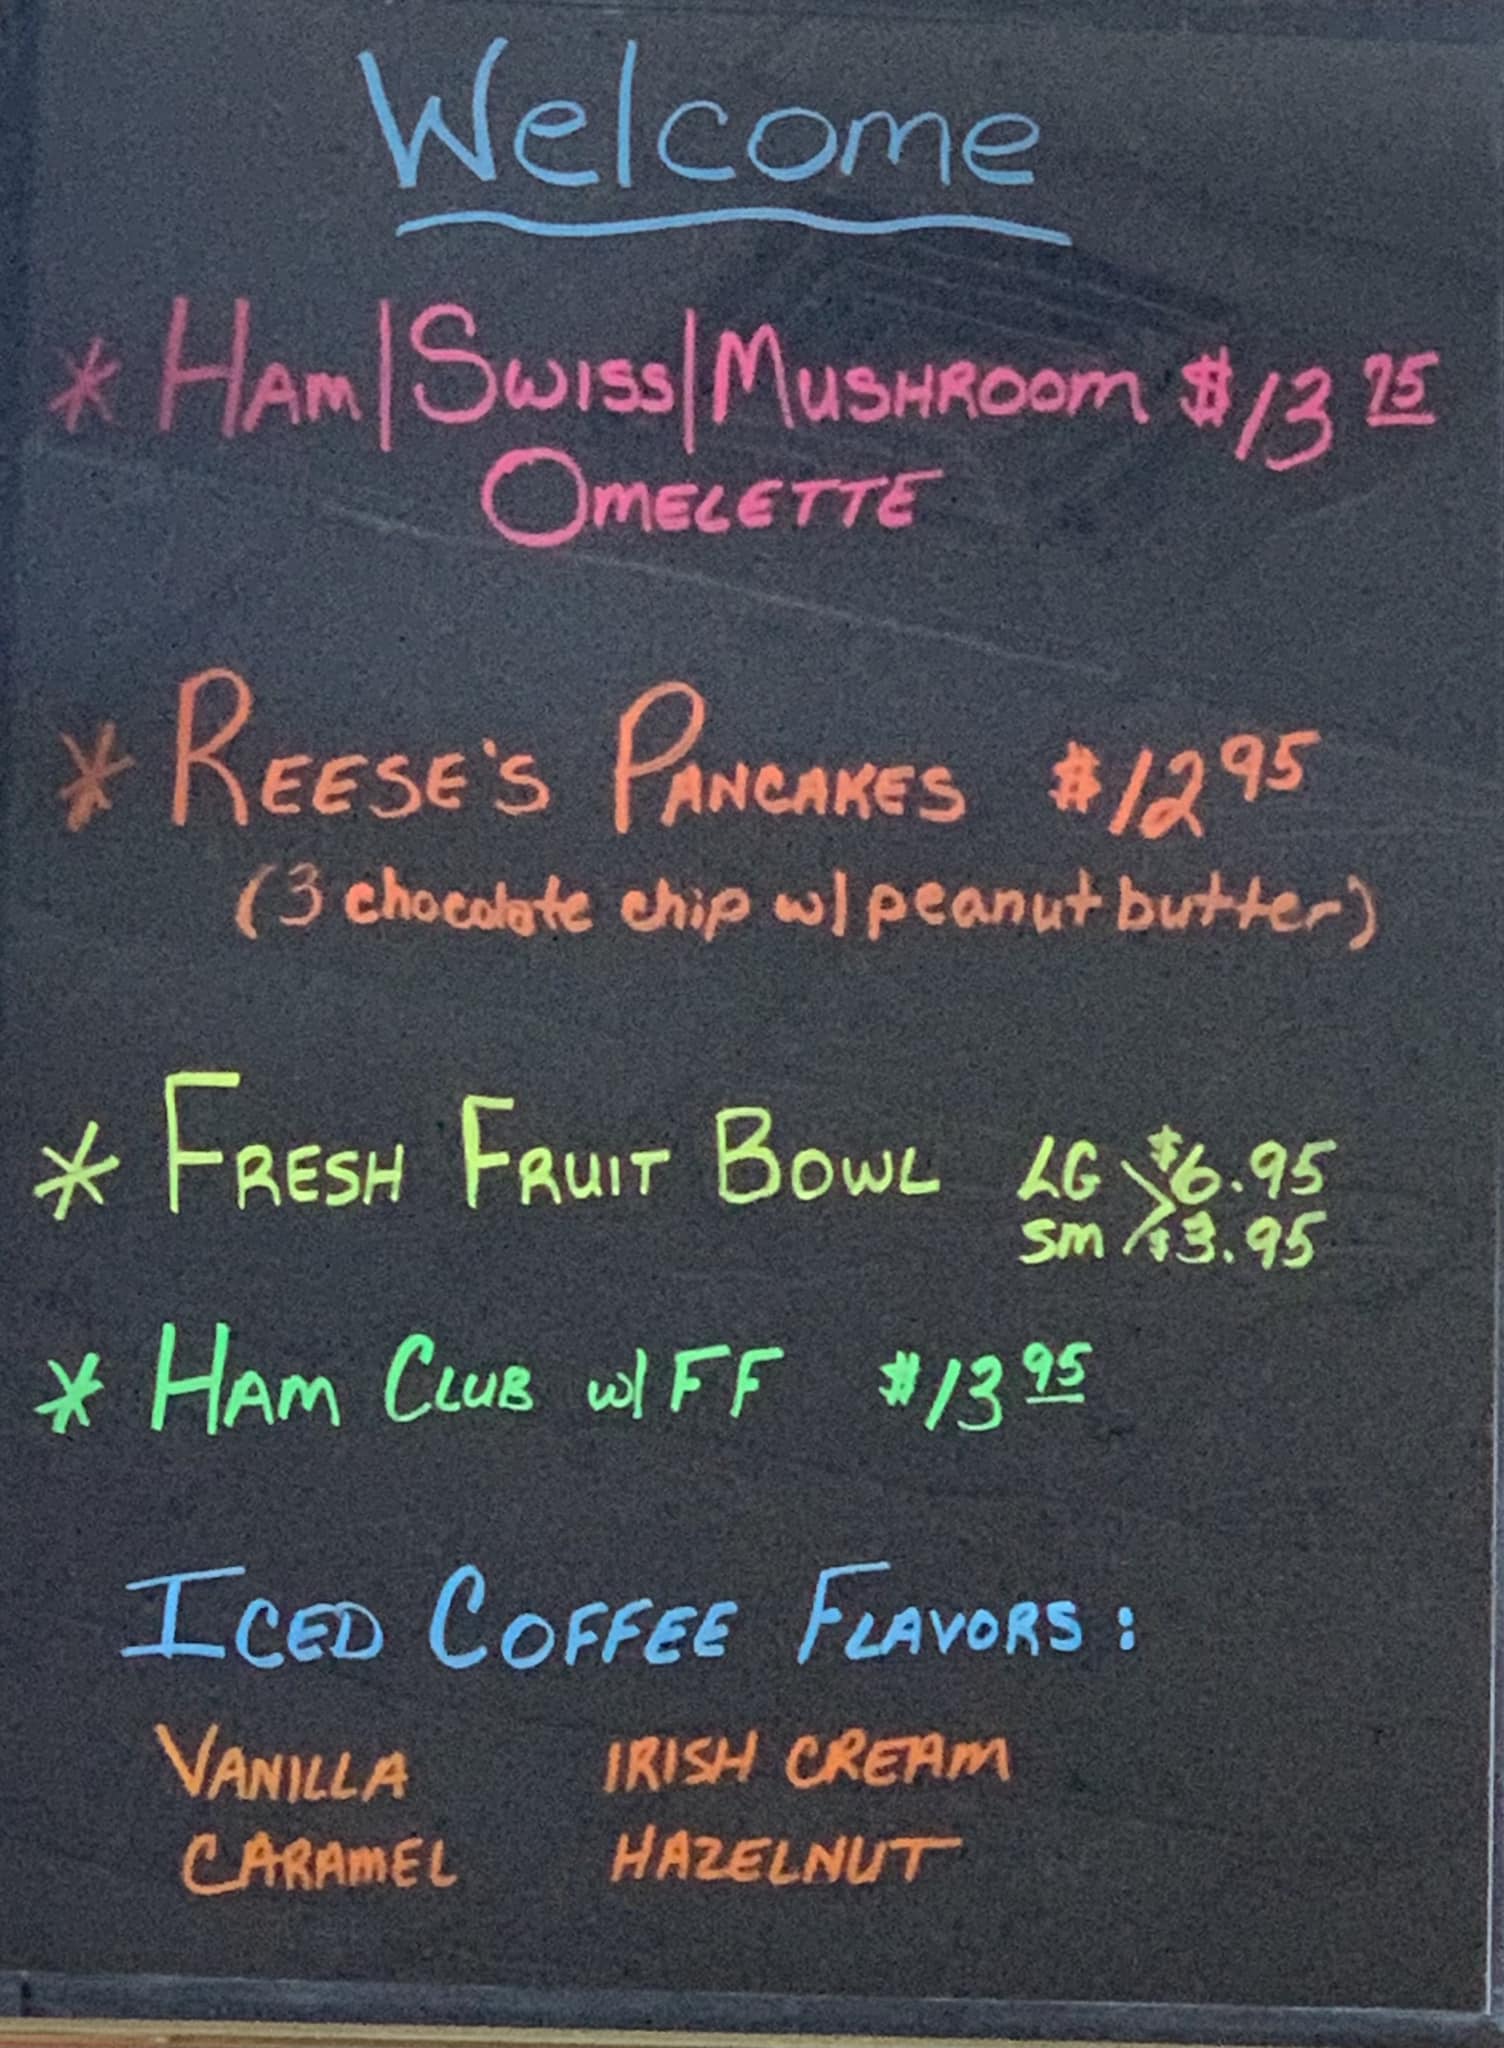 Welcome
* HAM|SWISS|MUSHROOM $13 95
OMELETTE
* REESE'S PANCAKES $12 95
(3 chocolate chip w/ peanut butter)
* FRESH FRUIT BOWL LG $6.95
SM $3.95
* HAM CLUB w/ FF $13 95
ICED COFFEE FLAVORS:
VANILLA IRISH CREAM
CARAMEL HAZELNUT